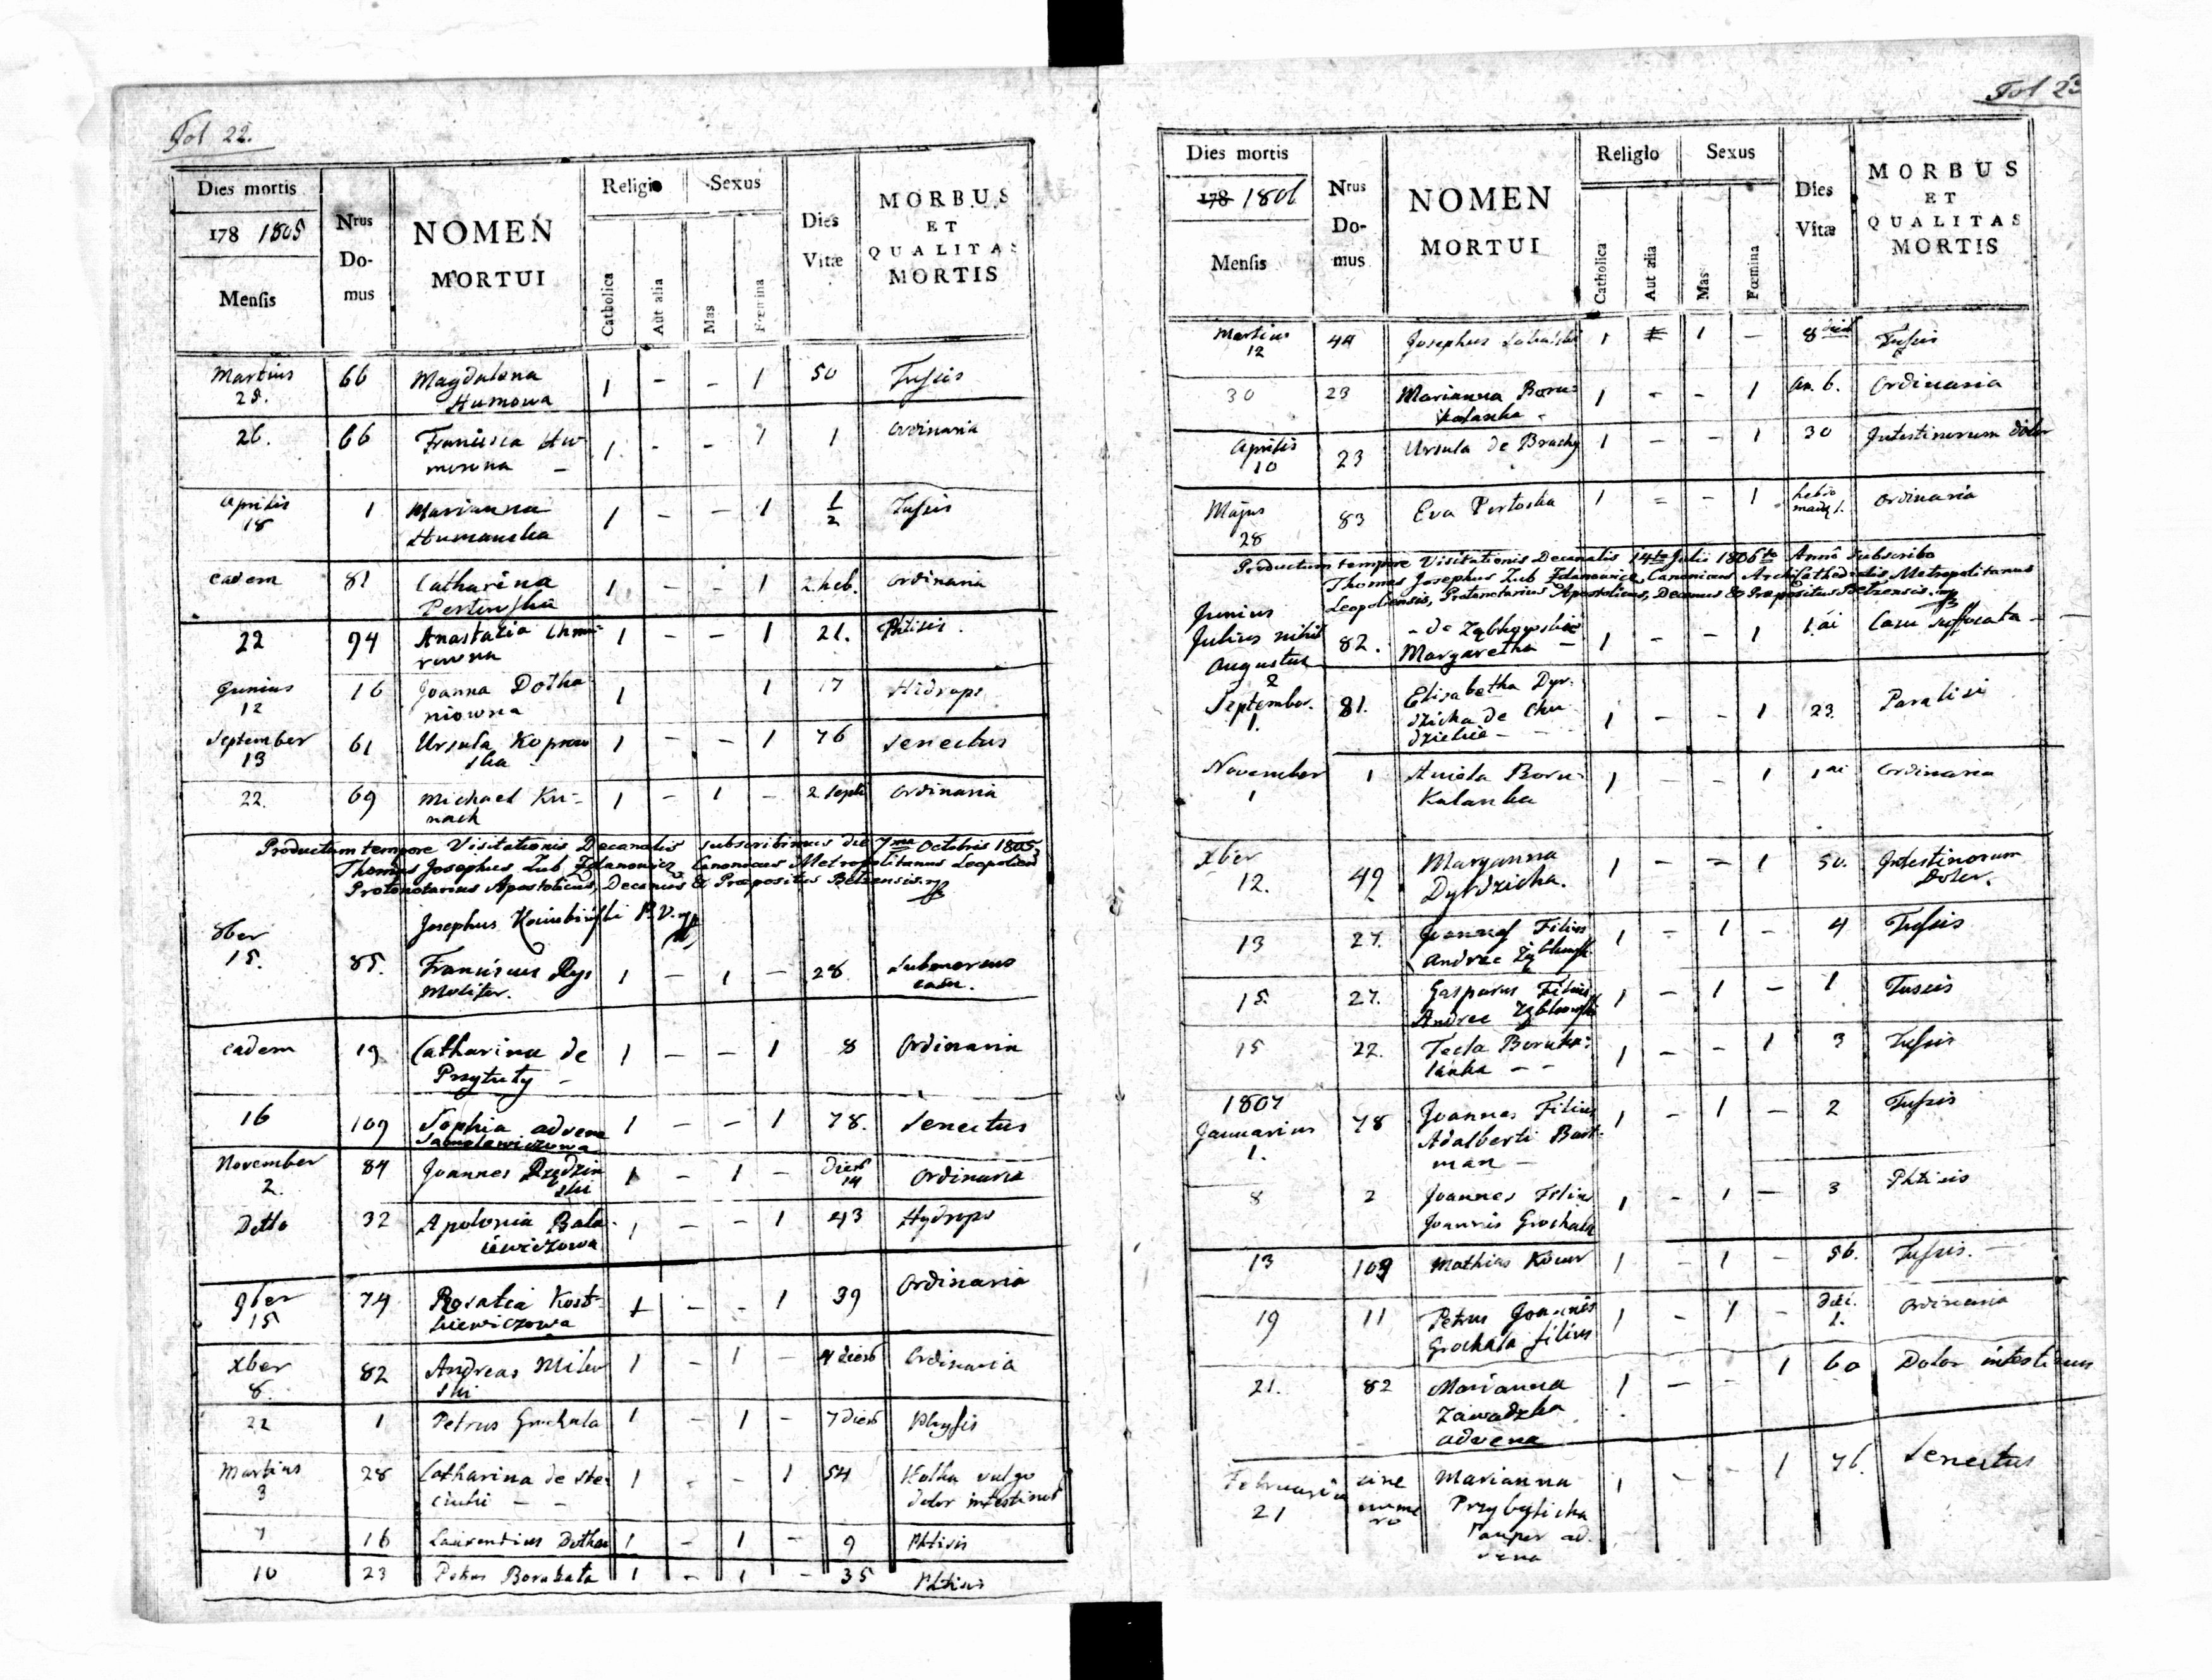 Fol 22.
Dies mortis
178 1805
Mensis
Nrus
Do-
mus
NOMEN
MORTUI
Religio
Catholica
Aut alia
Sexus
Mas
Fœmina
Dies
Vitæ
MORBUS
ET
QUALITAS
MORTIS
Martius 66 Magdalena 1 - - 1 50 Tussis
Humowa
26. 66 1 - - 1 1 Ordinaria
Aprilis 1 Marianna 1 - - 1 1/2 Tussis
18 Humanska
eadem 81 Catharina 1 - - 1 2 heb. Ordinaria
22 94 Anastazia 1 - - 1 21. Phtisis.
Junius 16 Joanna Dotha 1 1 17 Hidrops
12 niowna
September 61 Ursula Koprow 1 - - 1 76 Senectus
13 ska
22. 69 Michael Ku- 1 - 1 - 2 Ordinaria
nach
Productum tempore Visitationis Decanalis subscribimus die 7ma Octobris 1805
Thomas Josephus Zub Zdanowicz Canonicus Metropolitanus Leopolien
Protonotarius Apostolicus, Decanus & Præpositus Belzensis. mp
Josephus P. V. mp
8ber
15. 85. Franciscus Rys 1 - 1 - 28 Submersus
Molitor. casu.
eadem 19 Catharina de 1 - - 1 8 Ordinaria
Przytuty -
16 109 Sophia advena 1 - - 1 78. Senectus
November 84 Joannes Rządzin 1 - 1 - Dies Ordinaria
2. ski 14
Detto 32 Apolonia Bala- 1 - - 1 43 Hydrops
iewiczowa
9ber 74 Rosalia Kost- 1 - - 1 39 Ordinaria
15 kiewiczowa
Xber 82 Andreas Milew 1 - 1 - 4 dies Ordinaria
8. ski
22 1 Petrus Grochala 1 - 1 - 7 Dies
Martius 28 Catharina de Ste- 1 - - 1 54 Kolka vulgo
3 ciuki - - dolor intestinor
7 16 Laurentius Dothan 1 - 1 - 9 Phtisis
10 23 Petrus Borukata 1 - 1 - 35 Phtisis
Fol 23
Dies mortis
178 1806
Mensis
Nrus
Do-
mus
NOMEN
MORTUI
Religio
Catholica
Aut alia
Sexus
Mas
Fœmina
Dies
Vitæ
MORBUS
ET
QUALITAS
MORTIS
Martius 44 Josephus 1 1 - 8 dies Tussis
12
30 23 Marianna Boru- 1 - - 1 an. 6. Ordinaria
kalanka -
Aprilis 23 Ursula de Brachy 1 - - 1 30 Intestinorum dolor
10
Majus 83 Eva Pertoska 1 - - 1 Ordinaria
28
Productum tempore Visitationis Decanalis 14ta Julii 1806to Anno subscribo
Thomas Josephus Zub Zdanowicz, Canonicus ArchiCathedralis Metropolitanus
Leopoliensis, Protonotarius Apostolicus, Decanus & Præpositus Belzensis. mp
Junius
Julius nihil 82. - de 1 - - 1 1 ai Casu suffocata -
Augustus Margaretha -
2
September. 81. Elisabetha Dyr- 1 - - 1 23. Paralisi
1. dzicha de Chu
dzickie -
November 1 Aniela Boru- 1 - - 1 1 ai Ordinaria
1 Kalanka
Xber 49 Maryanna 1 - - 1 50. Intestinorum
12. Dyrdzicha. Dolor.
13 27. Joannes Filius 1 - 1 - 4 Tussis
Andree
15. 27. Gasparus Filius 1 - 1 - 1 Tussis
Andree
15 22. Tecla Boruka- 1 - - 1 3 Tussis
lanka - -
1807
Januarius 78 Joannes Filius 1 - 1 - 2 Tussis
1. Adalberti Bart-
man -
8 2 Joannes Filius 1 - 1 - 3 Phtisis
Joannis Grochala
13 109 Mathias 1 - 1 - 56. Tussis. -
19 11 Petrus Joannis 1 - 1 - Ordinaria
Grochala filius
21. 82 Marianna 1 - - 1 60 Dolor intestinor
Zawadzka
advena
Februarius sine Marianna 1 - - 1 76. Senectus
21 nume Przybylicha
ro Pauper ad-
vena